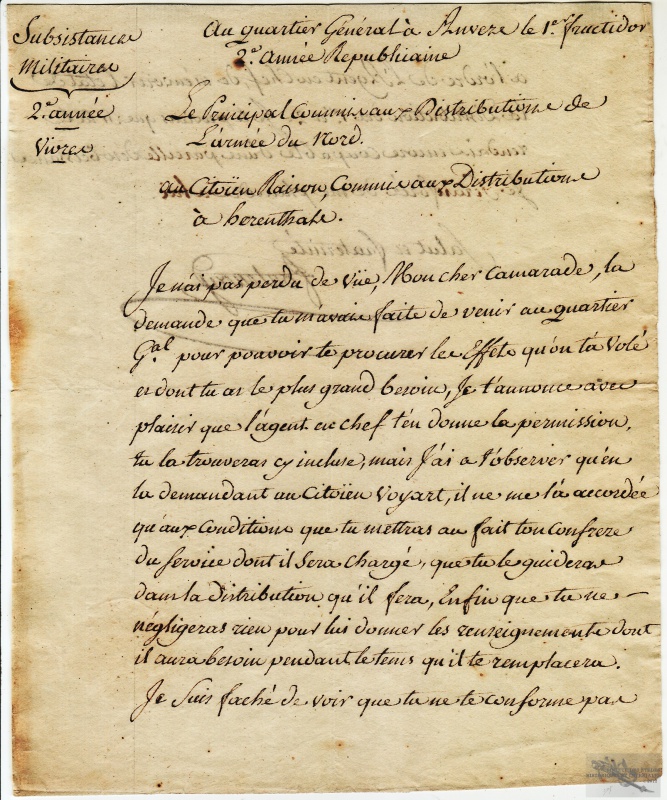 Subsistances
Militaires
2.e année
Vivres
Au quartier Général à Anvers le 1.er fructidor
2.e année Republicaine
Le Principal Commis aux Distributions de
L'armée du Nord.
au Citoïen Raison, Commis aux Distributions
à herenthals.
Je n'ai pas perdu de vüe, Mon cher Camarade, la
demande que tu m'avais faite de venir au quartier
G.al pour pouvoir te procurer les Effets qu'on t'a Volé
et dont tu as le plus grand besoin, Je t'annonce avec
plaisir que l'agent en chef t'en donne la permission,
tu la trouveras cy incluse, mais J'ai a t'observer qu'en
la demandant au Citoïen Voyart, il ne me l'a accordée
qu'aux Conditions que tu mettras au fait ton Confrere
du Service dont il Sera Chargé, que tu le guideras
dans la Distribution qu'il fera, Enfin que tu ne
négligeras rien pour lui donner les renseignements dont
il aura besoin pendant le tems qu'il te remplacera.
Je Suis faché de voir que tu ne te conforme pas